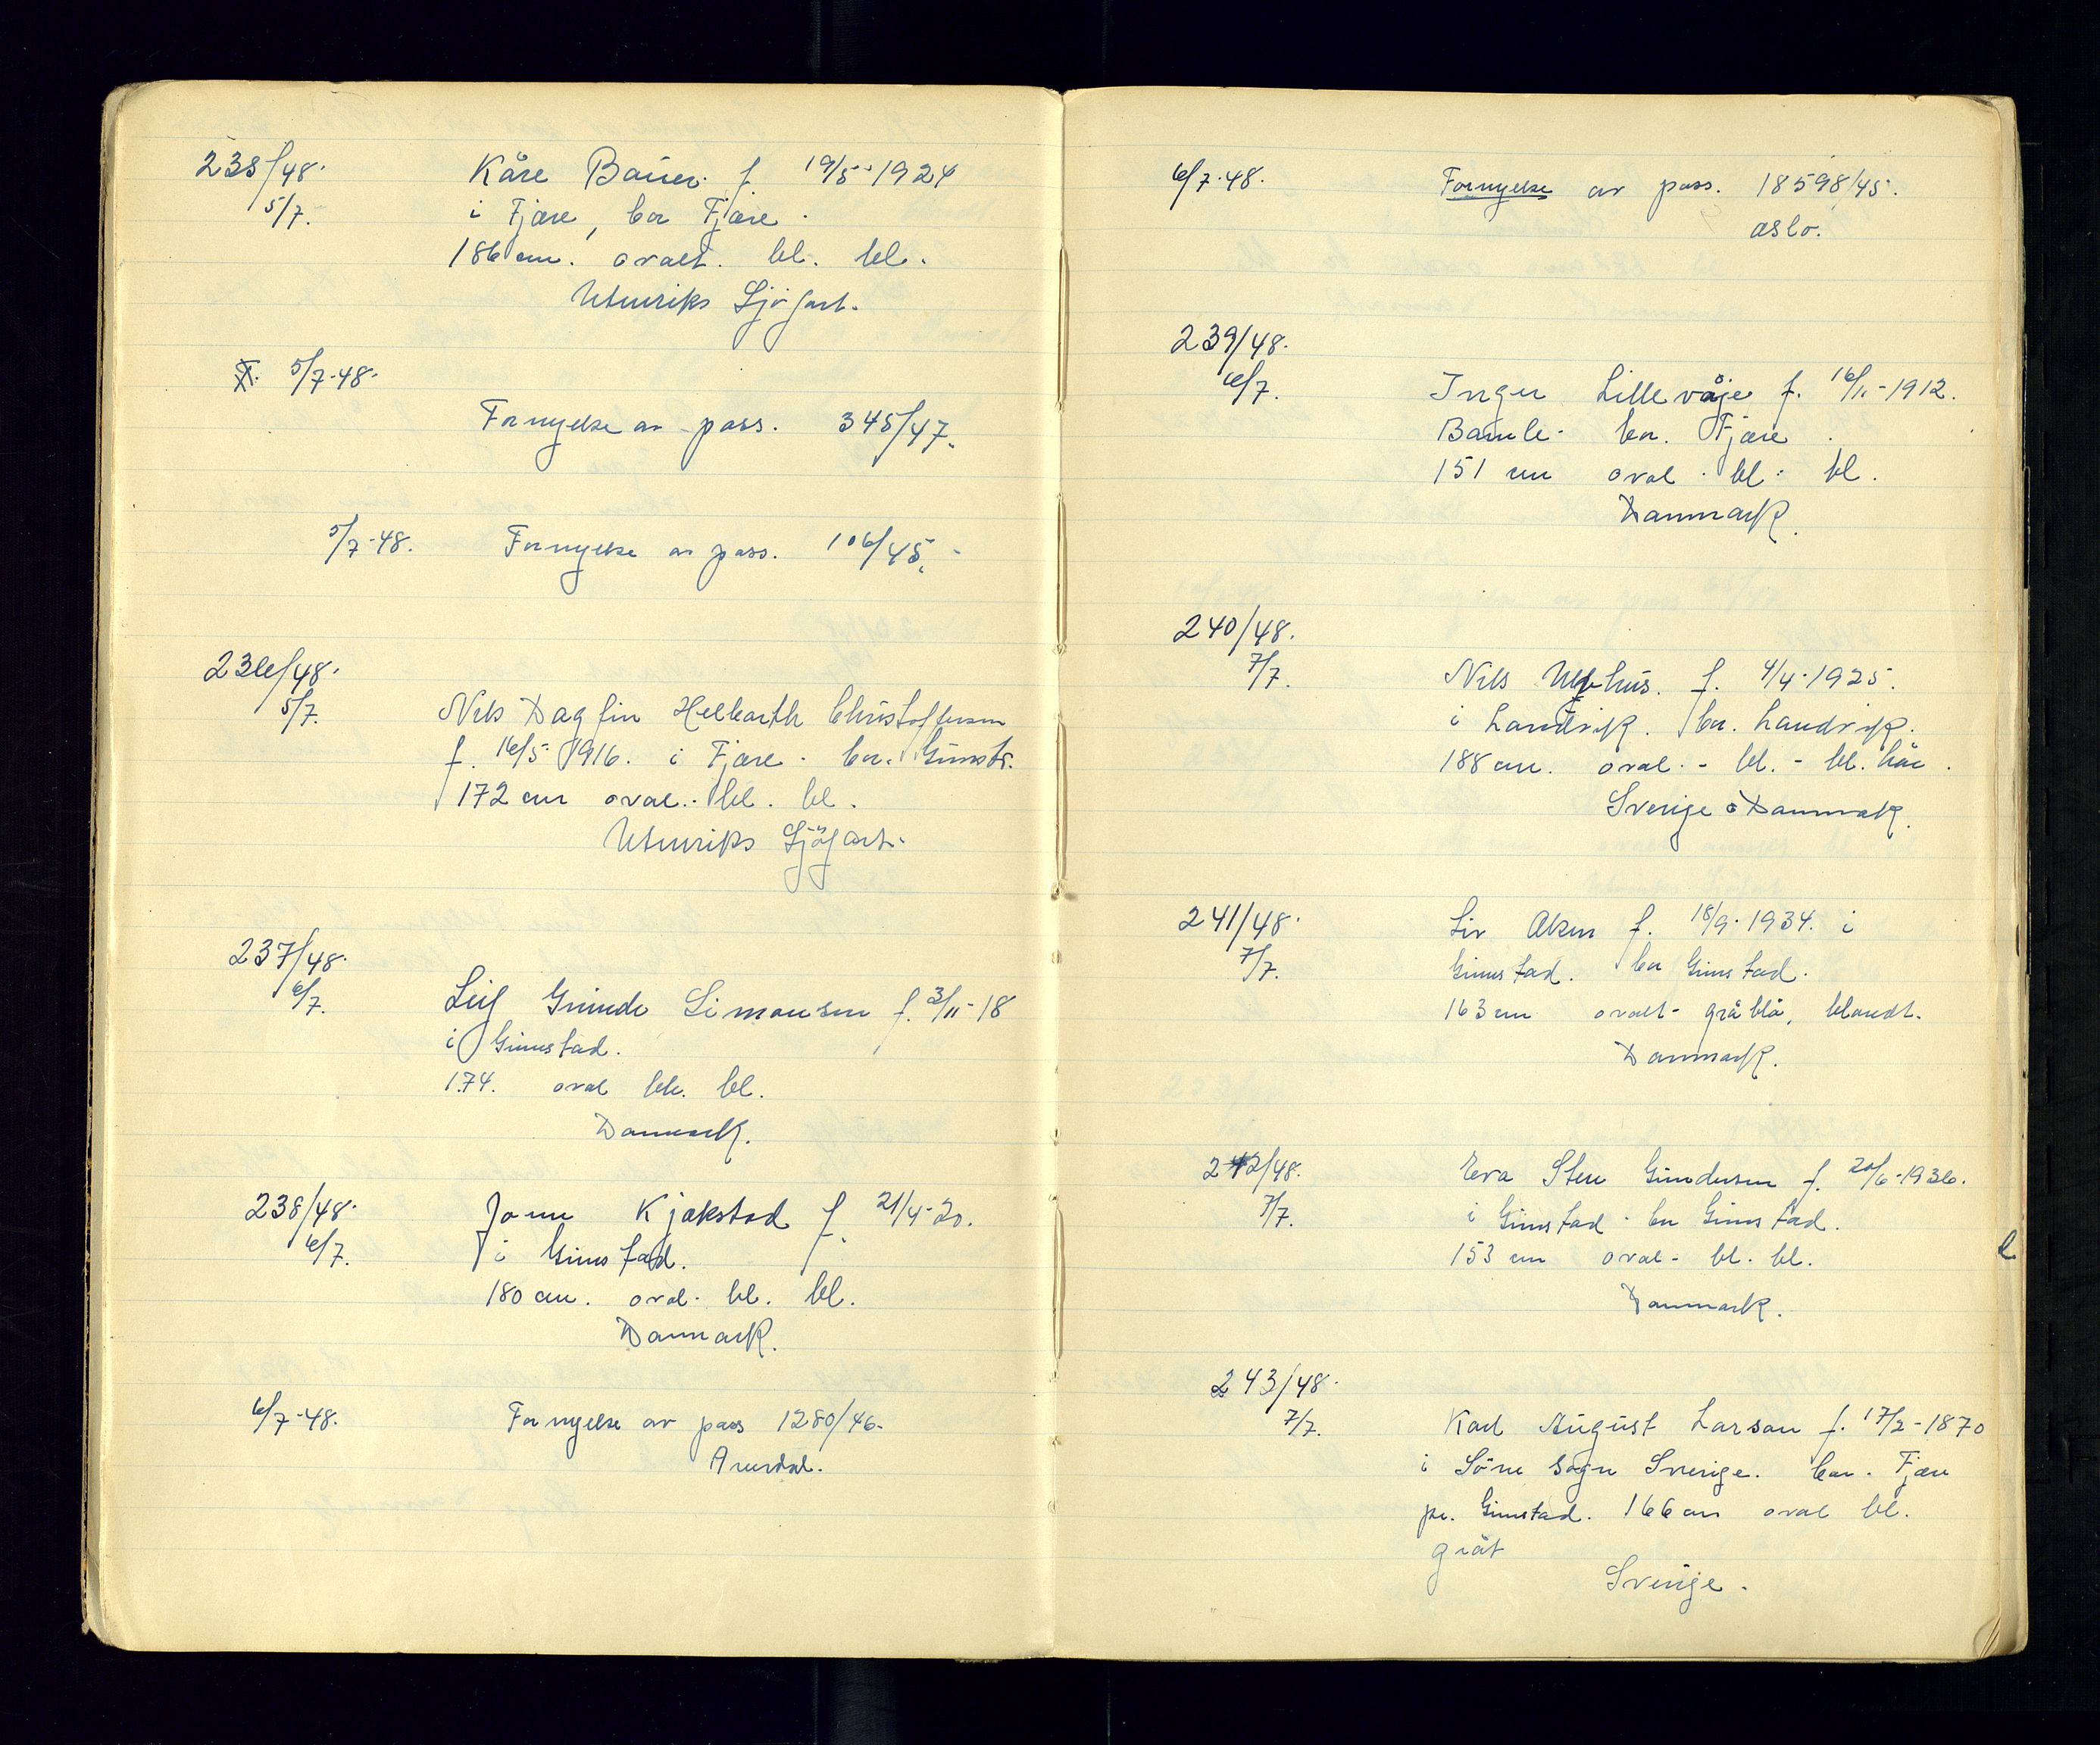 235/48.
5/7.
Kåre Bauer. f. 19/5-1924
i Fjære, bor Fjære.
186 cm. ovalt. bl. bl.
Utenriks Sjöfart.
5/7-48.
Fornyelse av pass. 345/47.
5/7-48. Fornyelse av pass. 106/45.
236/48.
5/7.
Nils Dagfin Helbarth Christoffersen
f. 16/5 1916. i Fjære. bor. Grimst.
172 cm oval. bl. bl.
Utenriks Sjöfart.
237/48.
6/7.
Leif Gunde Simonsen f. 3/11-18
i Grimstad.
174. oval bl. bl.
Danmark.
238/48.
6/7.
Kjøkstad f. 21/4-20.
i Grimstad.
180 cm. oval. bl. bl.
Danmark.
6/7-48. Fornyelse av pass 1280/46.
Arendal.
6/7-48. Fornyelse av pass. 18598/45.
Oslo.
239/48.
6/7.
Inger Lillevåje f. 16/11-1912.
Bamle. bor. Fjære.
151 cm oval. bl. bl.
Danmark.
240/48.
7/7.
Nils f. 4/4-1925.
i Landvik. bor. Landvik.
188 cm. oval. - bl. - bl. hår.
Sverige o Danmark.
241/48.
7/7.
Liv Aksen f. 18/9-1934. i
Grimstad. bor Grimstad.
163 cm ovalt - gråblå, blondt.
Danmark.
242/48.
7/7.
Eva Sten Gundersen f. 20/6-1936.
i Grimstad. bor Grimstad.
153 cm oval - bl. bl.
Danmark.
243/48.
7/7.
Karl August Larson f. 17/2-1870
i Söne Sogn Sverige. bor. Fjære
pr. Grimstad. 166 cm oval bl.
gråt
Sverige.